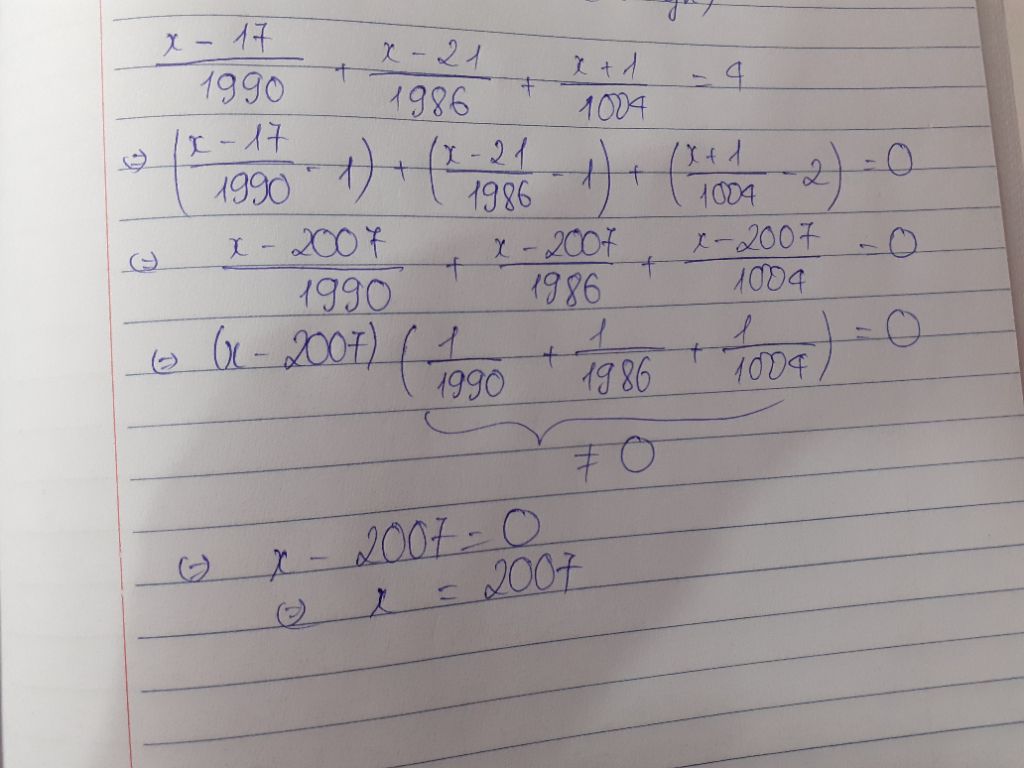 x - 17 / 1990 + x - 21 / 1986 + x + 1 / 1004 = 4
(=) (x - 17 / 1990 - 1) + (x - 21 / 1986 - 1) + (x + 1 / 1004 - 2) = 0
(=) x - 2007 / 1990 + x - 2007 / 1986 + x - 2007 / 1004 = 0
(=) (x - 2007) (1 / 1990 + 1 / 1986 + 1 / 1004) = 0
≠ 0
(=) x - 2007 = 0
(=) x = 2007